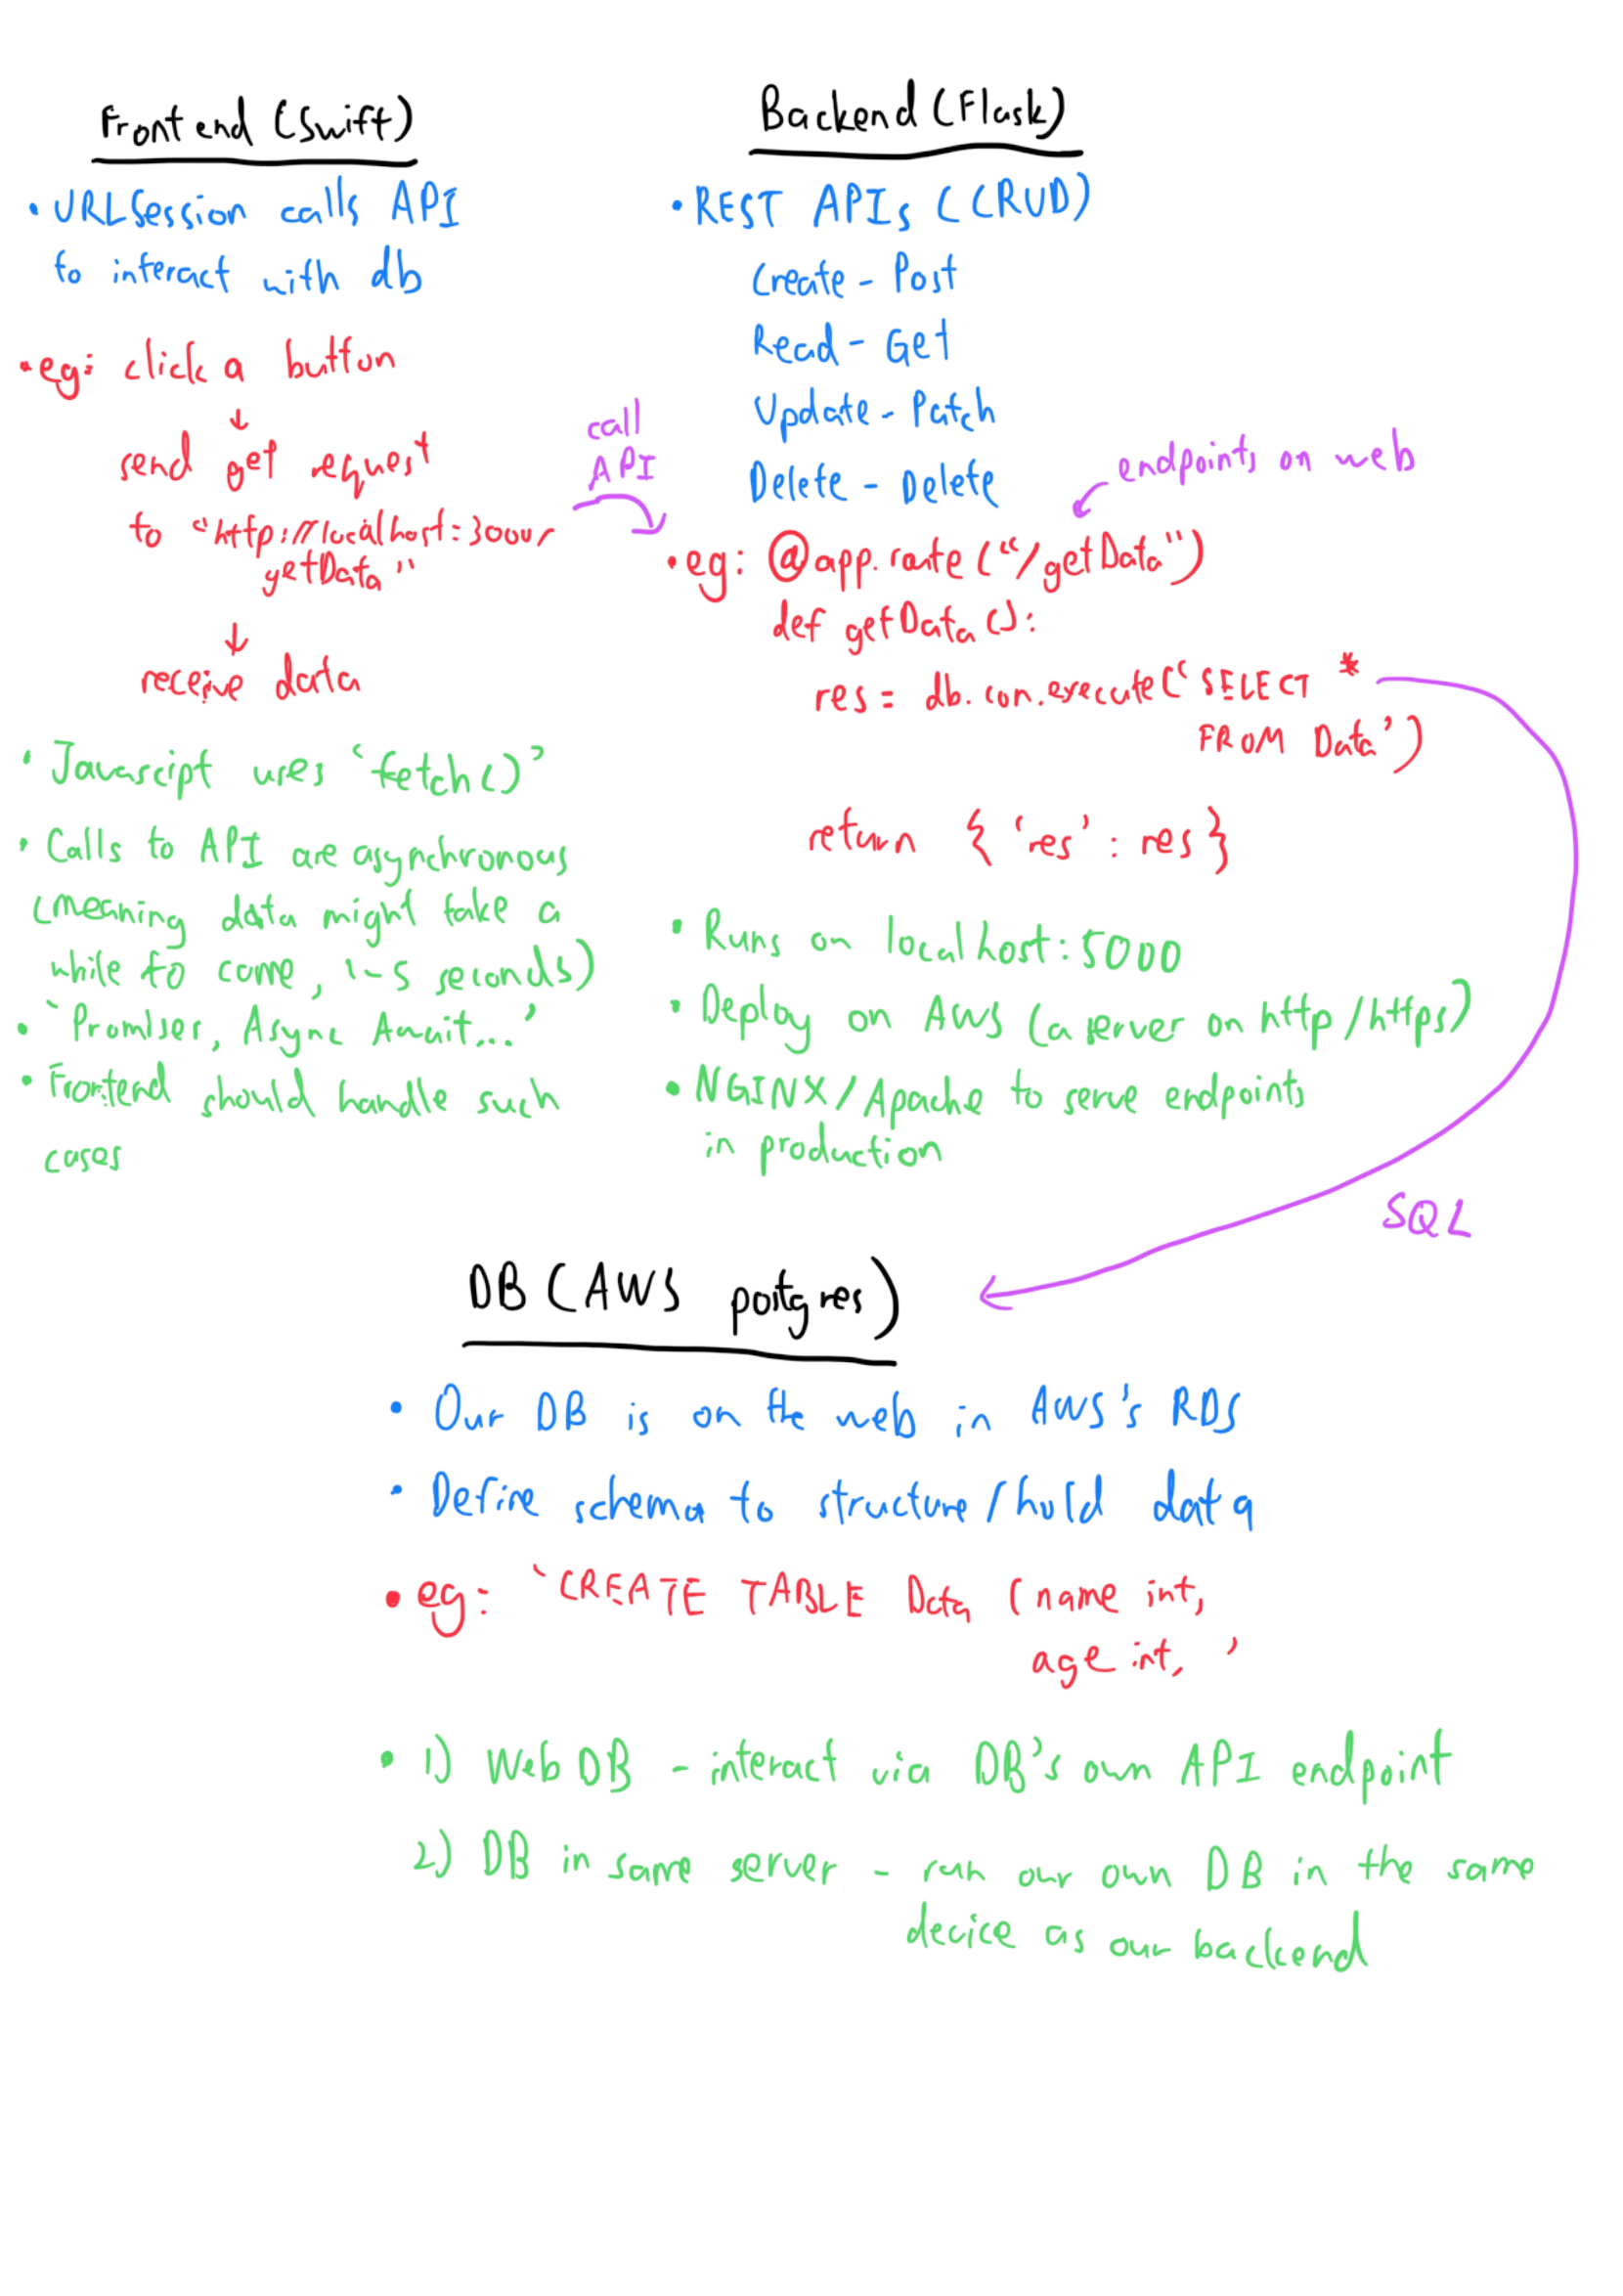 Frontend (Swift)
• URLSession calls API
to interact with db
• eg: click a button
↓
send get request
to "http://localhost:3000/
getData"
↓
receive data
• Javascript uses 'fetch()'
• Calls to API are asynchronous
(meaning data might take a
while to come, 1-5 seconds)
• 'Promises, Async Await...'
• Frontend should handle such
cases
call
API
Backend (Flask)
• REST APIs (CRUD)
Create - Post
Read - Get
Update - Patch
Delete - Delete
endpoints on web
• eg: @app.route("/getData")
def getData():
res = db.con.execute('SELECT *
FROM Data')
return { 'res': res }
• Runs on localhost:5000
• Deploy on AWS (a server on http/https)
• NGINX/Apache to serve endpoints
in production
SQL
DB (AWS postgres)
• Our DB is on the web in AWS's RDS
• Define schema to structure/hold data
• eg: 'CREATE TABLE Data (name int,
age int, '
• 1) Web DB - interact via DB's own API endpoint
2) DB in same server - run our own DB in the same
device as our backend